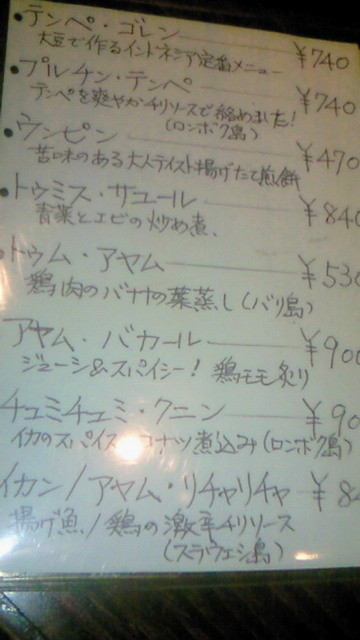 ●テンペ・ゴレン ¥740
大豆で作るインドネシア定番メニュー
●プルチン・テンペ ¥740
テンペを爽やかチリソースで絡めました!
(ロンボク島)
●ウンピン ¥470
苦味のある大人テイスト揚げたて煎餅
●トゥミス・サユール ¥840
青菜とエビの炒め煮、
●トゥム・アヤム ¥530
鶏肉のバナナの葉蒸し(バリ島)
アヤム・バカール ¥900
ジューシ&スパイシー! 鶏モモ炙り
チュミチュミ・クニン ¥90
イカのスパイス ココナツ煮込み(ロンボク島)
イカン/アヤム・リチャリチャ ¥8
揚げ魚/鶏の激辛チリソース
(スラウェシ島)